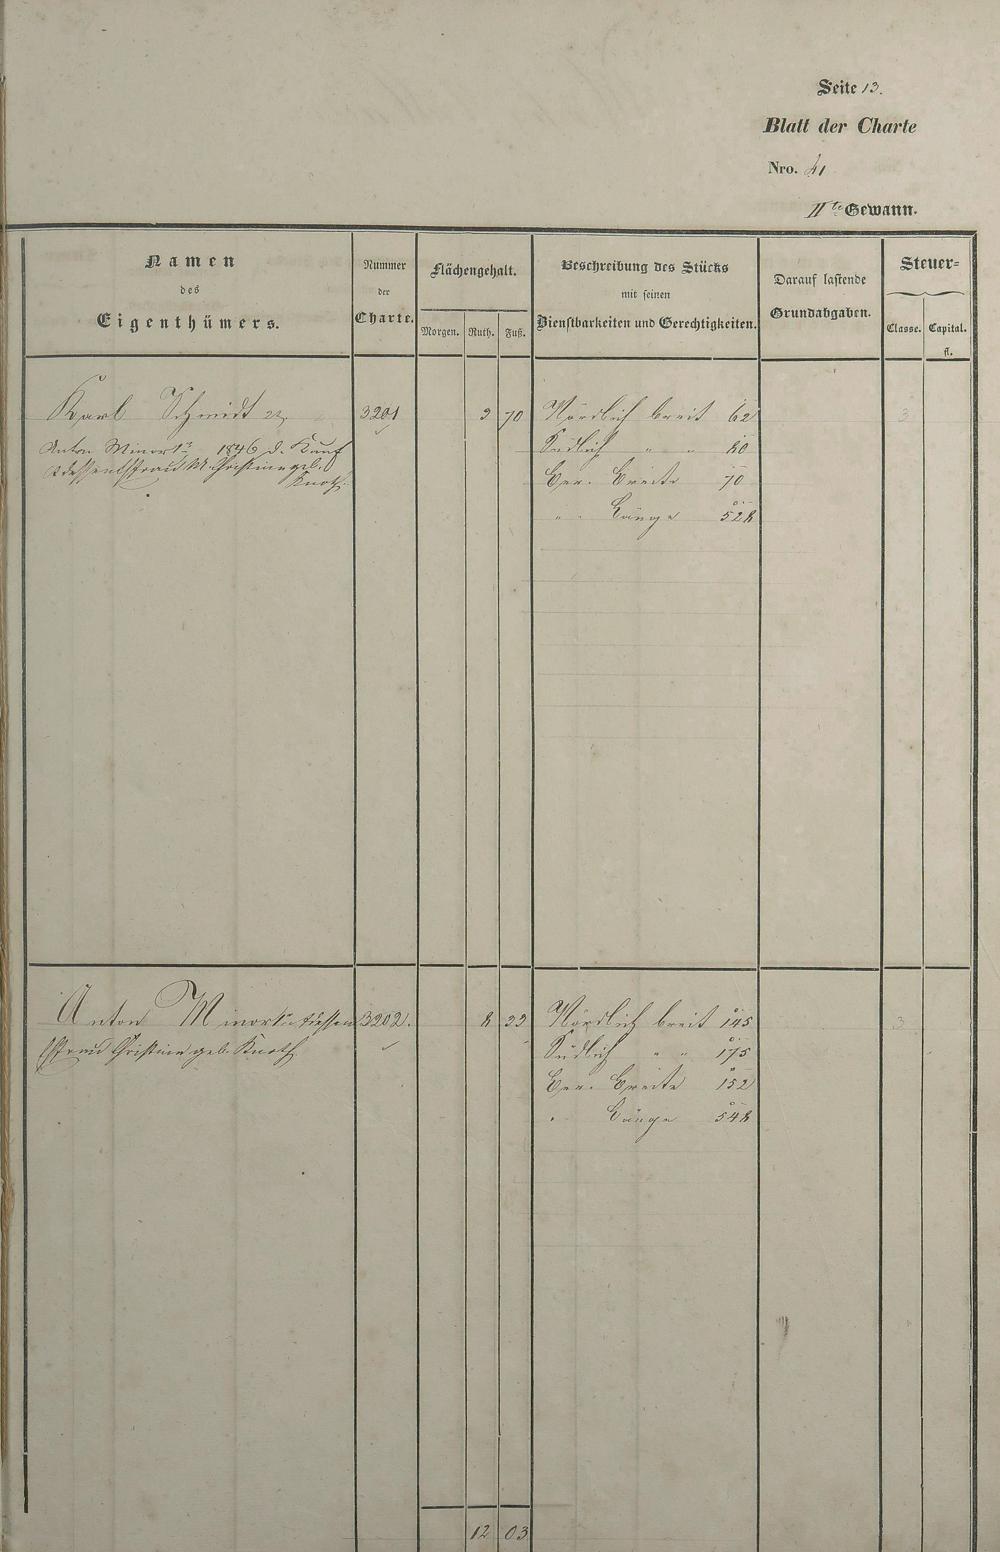 Seite 13.
Blatt der Charte
Nro. 41
IIte Gewann.
Namen
des
Eigenthümers.
Nummer
der
Charte.
Flächengehalt.
Morgen. Ruth. Fuß.
Beschreibung des Stücks
mit seinen
Dienstbarkeiten und Gerechtigkeiten.
Darauf lastende
Grundabgaben.
Steuer-
Classe. Capital.
fl.
Karl Schmidt 3201 3 70 Nördlich breit 62 3
Anton Minor 1846 d. Kauf Südlich " "
& dessen Ehefrau M. Christine geb. Ger. Breite 70
Knoth
" Länge 528
Anton Minor u. dessen 3202. 8 33 Nördlich breit 145 3
Ehefrau Christine geb. Knoth Südlich " " 175
Ger. Breite 152
" Länge 548
12 03